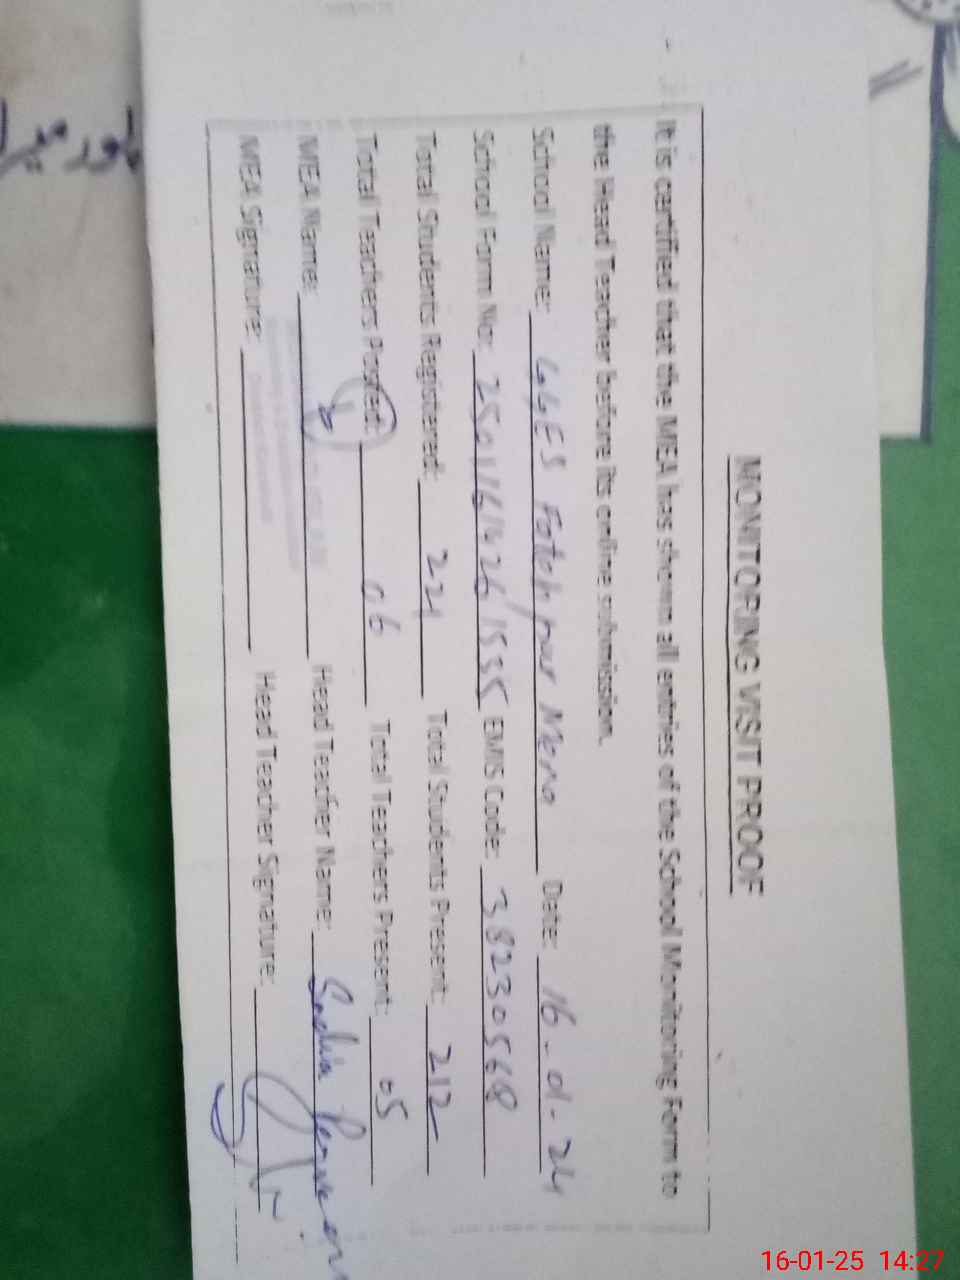 MONITORING VISIT PROOF
It is certified that the MEA has shown all entries of the School Monitoring Form to
the Head Teacher before its online submission.
School Name: GGES Fateh pur Mona Date: 16-01-24
School Form No: 2501161426/1535 EMIS Code: 38230568
Total Students Registered: 221 Total Students Present: 212
Total Teachers Posted: 06 Total Teachers Present: 05
MEA Name: Head Teacher Name: Sadia Perveen
MEA Signature: Head Teacher Signature:
16-01-25 14:27